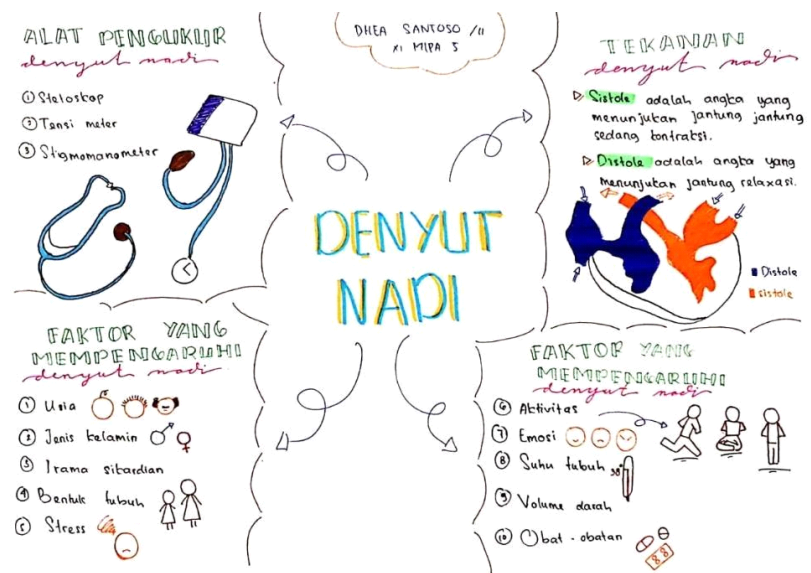 DHEA SANTOSO /11
XI MIPA 5
ALAT PENGUKUR
denyut nadi
① Stetoskop
② Tensi meter
③ Stigmomanometer
TEKANAN
denyut nadi
Sistole adalah angka yang
menunjukan jantung jantung
sedang kontraksi.
Distole adalah angka yang
menunjukan jantung relaxasi.
Distole
sistole
DENYUT
NADI
FAKTOR YANG
MEMPENGARUHI
denyut nadi
① Usia
② Jenis kelamin
③ Irama sikardian
④ Bentuk tubuh
⑤ Stress
FAKTOR YANG
MEMPENGARUHI
denyut nadi
⑥ Aktivitas
⑦ Emosi
⑧ Suhu tubuh
38°
⑨ Volume darah
⑩ Obat - obatan